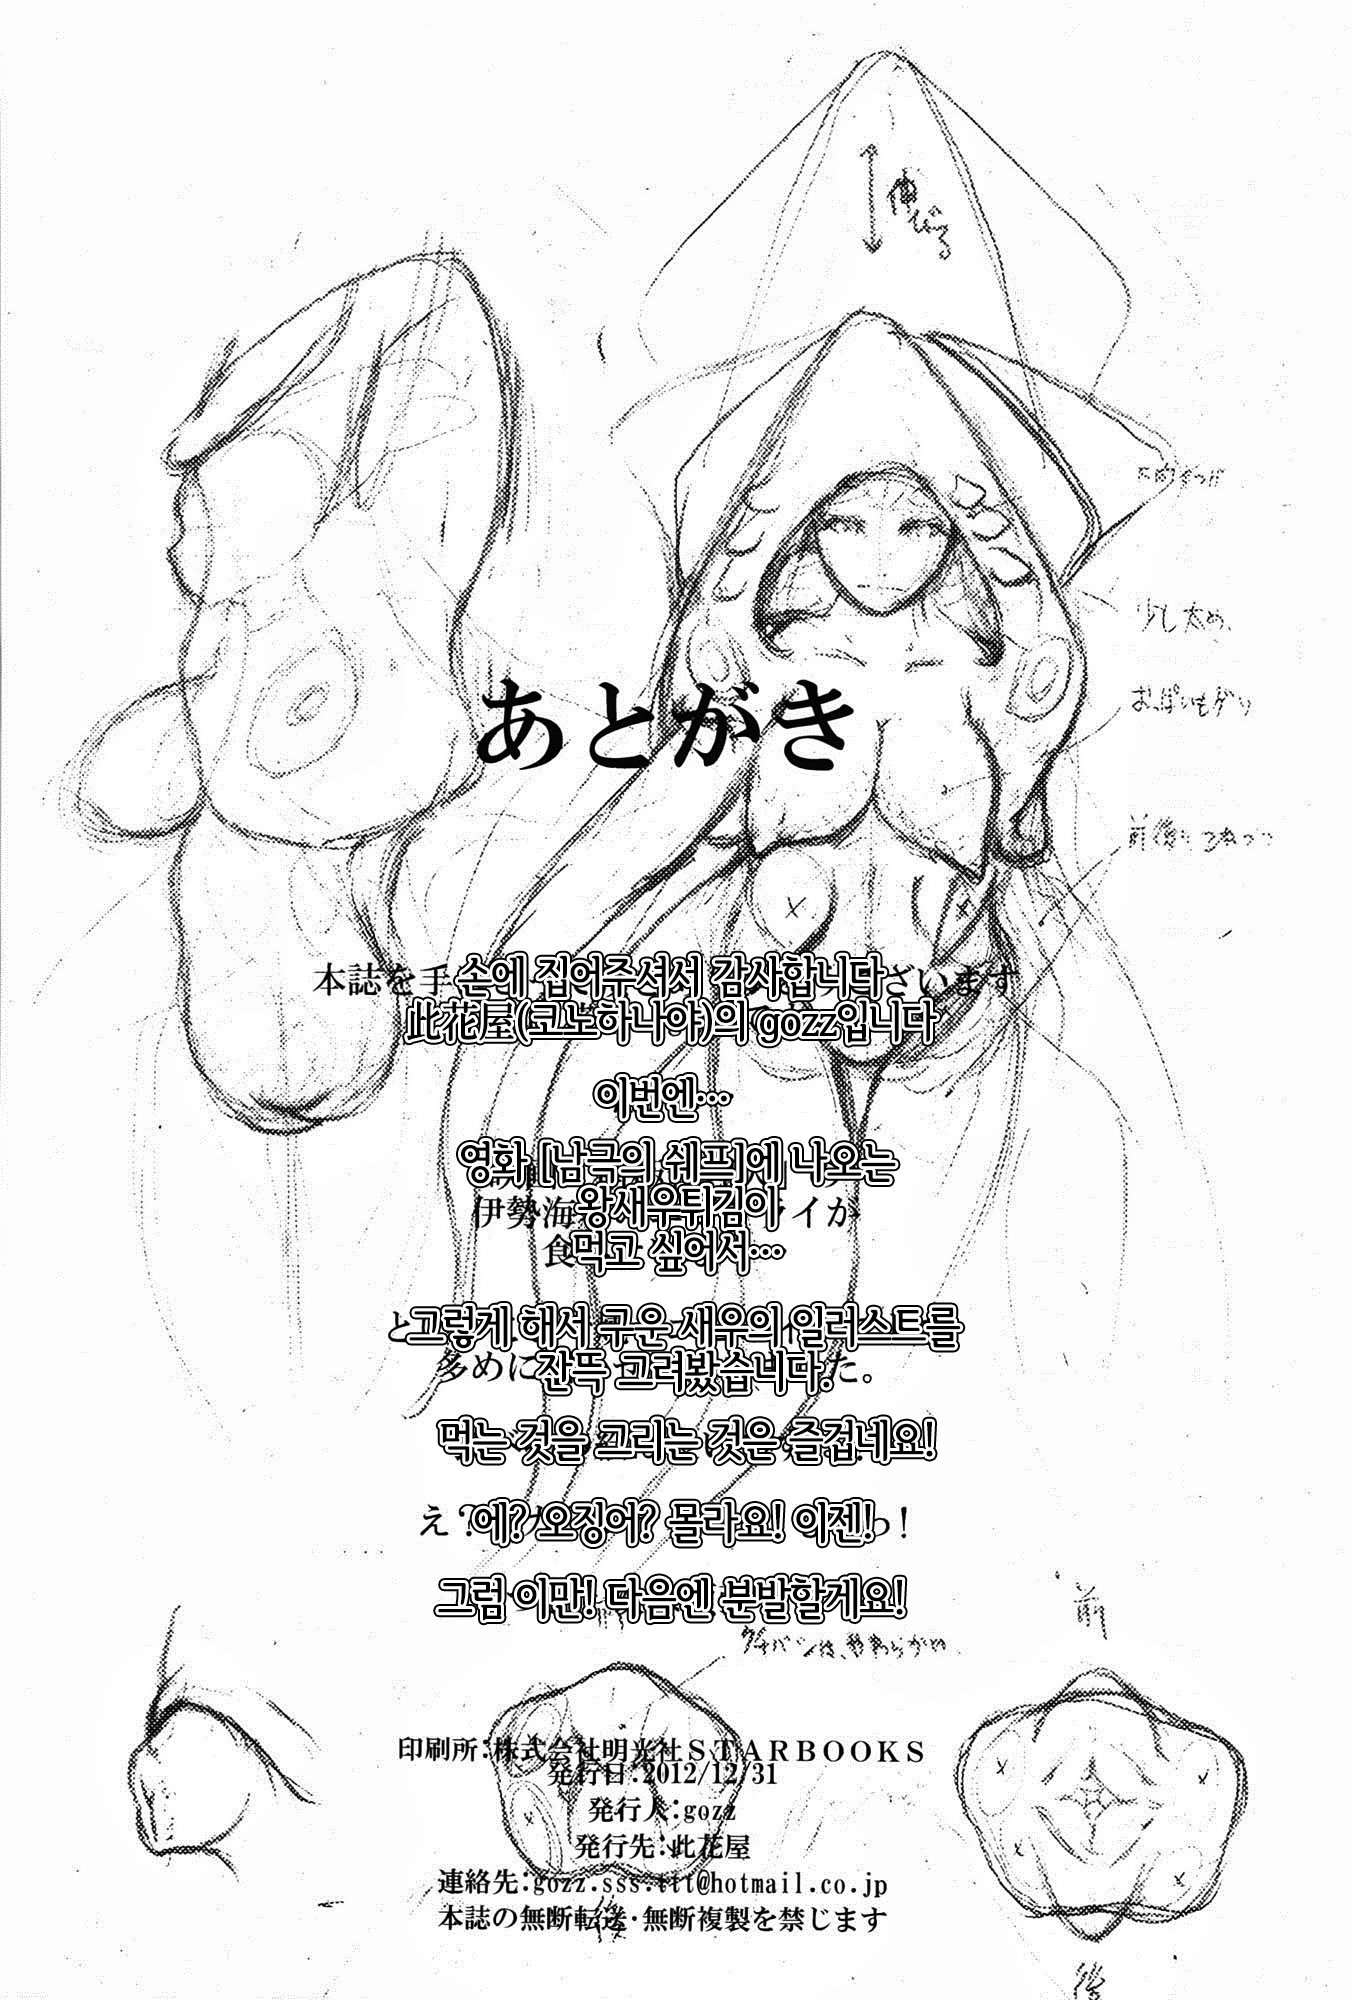 伸びる
少し太め、
あとがき
本誌を手
ざいます
손에 집어주셔서 감사합니다
此花屋(코노하나야)의 gozz입니다
이번엔…
영화 [남극의 쉐프]에 나오는
왕새우튀김이
伊勢海
ライが
먹고 싶어서…
食
그렇게 해서 구운 새우의 일러스트를
と
잔뜩 그려봤습니다.
多めに
た。
먹는 것을 그리는 것은 즐겁네요!
え?
에? 오징어? 몰라요! 이젠!
っ!
그럼 이만! 다음엔 분발할게요!
前
印刷所:株式会社明光社STARBOOKS
発行日:2012/12/31
発行人:gozz
発行先:此花屋
連絡先:gozz.sss.ttt@hotmail.co.jp
本誌の無断転送・無断複製を禁じます
後
後